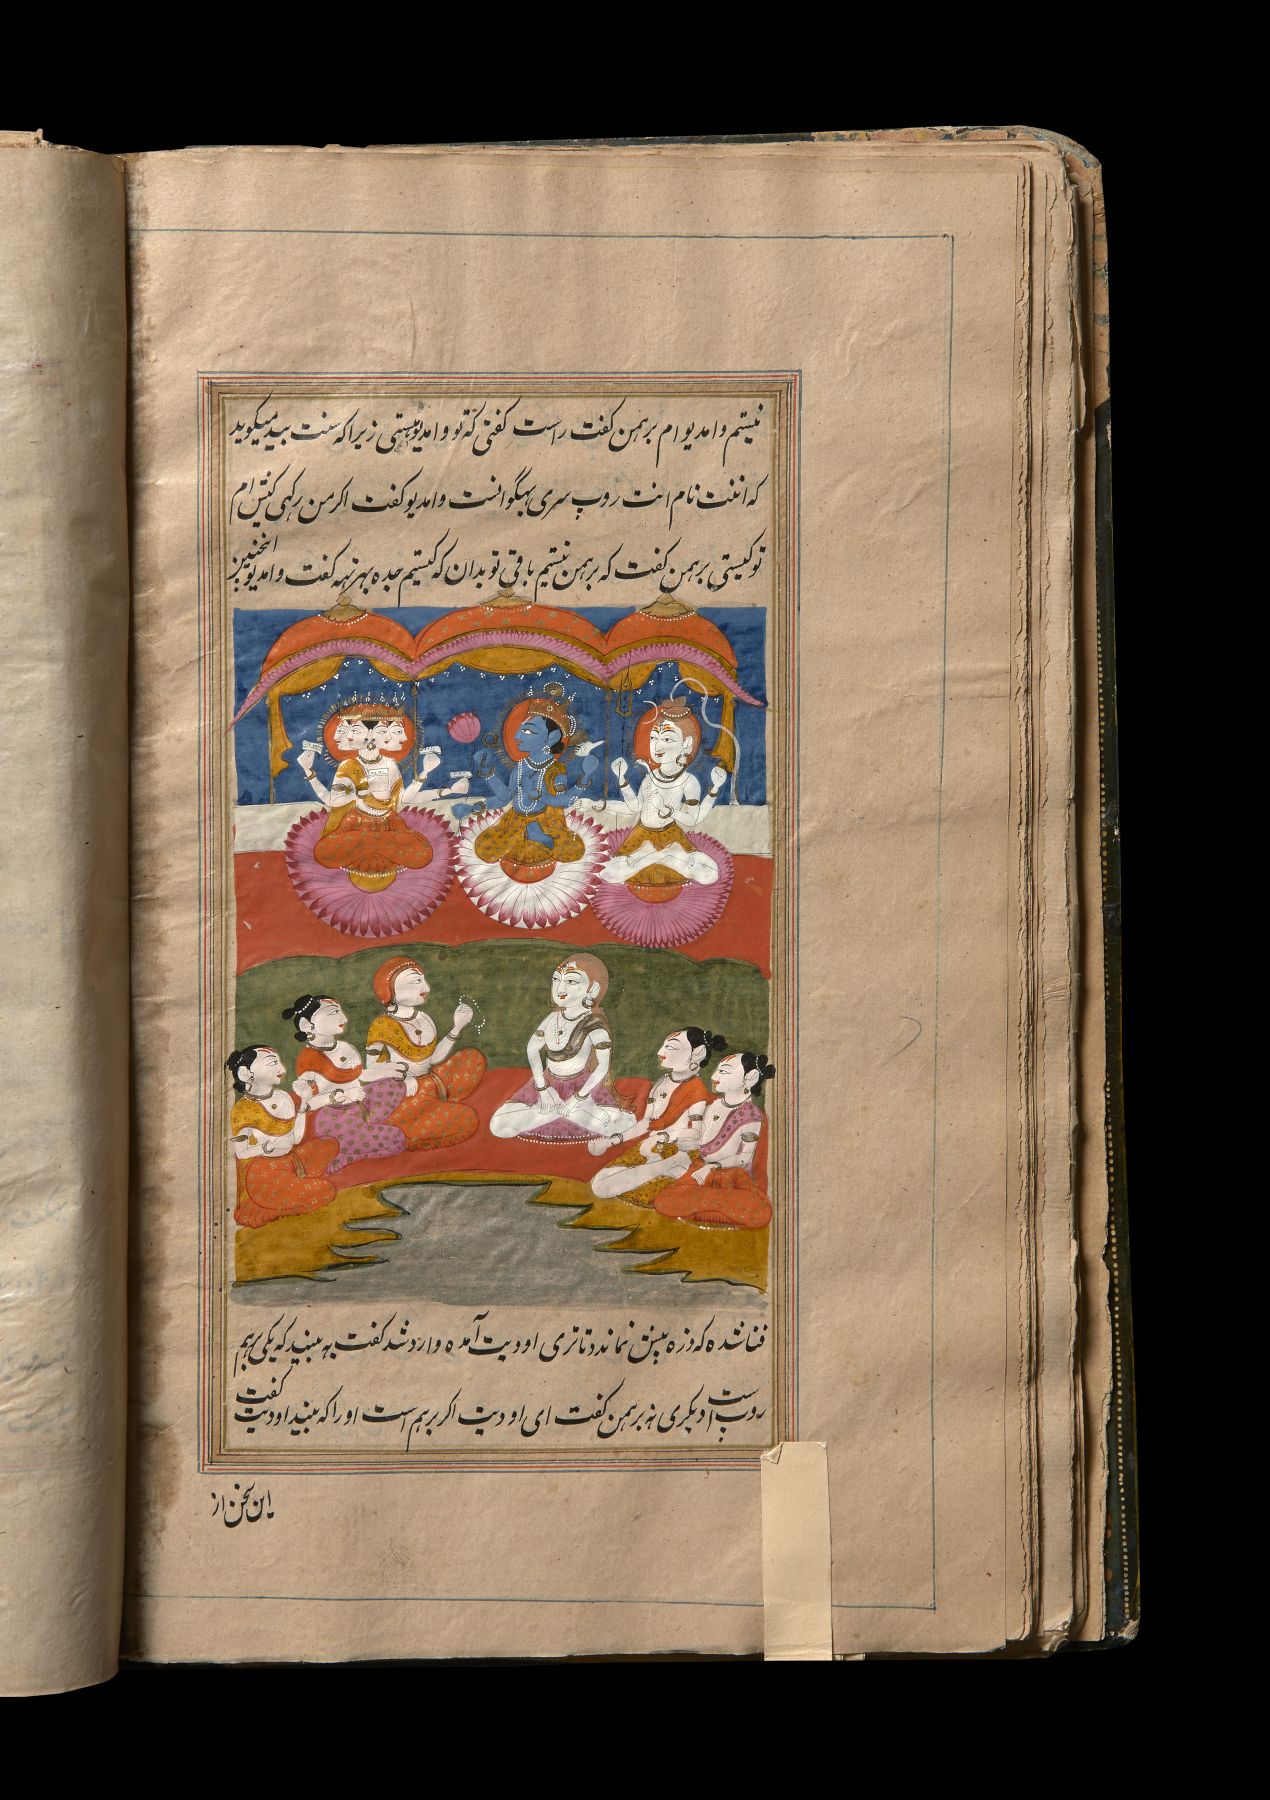 نیستم وامدیو ام برهمن کفت راست کفتی که تو وامدیو هستی زیرا که سنت بید میکوید
که اننت نام اننت روپ سری بهگوانست وامدیو کفت اکر من رکهی کیش ام
تو کیستی برهمن کفت که برهمن نیستم باقی تو بدان که کیستم جده بهرتهه کفت وامدیو انچنین
فنا شده که ذره بینش نماند دتاتری اودیت آمده وارد شد کفت به بینید که یکی برهم
روپ است دیکری نه برهمن کفت ای اودیت اکر برهم است او را که بیند اودیت کفت
این سخن از